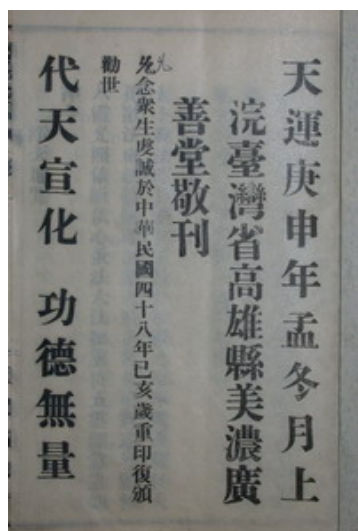 天運庚申年孟冬月上
浣臺灣省高雄縣美濃廣
善堂敬刊
念衆生虔誠於中華民國四十八年已亥歲重印復頒
勸世
代天宣化　功德無量